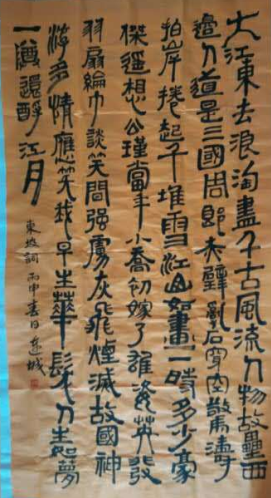 大江東去浪淘盡千古風流人物故壘西
邊人道是三國周郎赤壁亂石穿空驚濤
拍岸捲起千堆雪江山如畫一時多少豪
傑遥想公瑾當年小喬初嫁了雄姿英發
羽扇綸巾談笑間强虜灰飛煙滅故國神
游多情應笑我早生華髮人生如夢
一樽還酹江月
東坡詞丙申春日